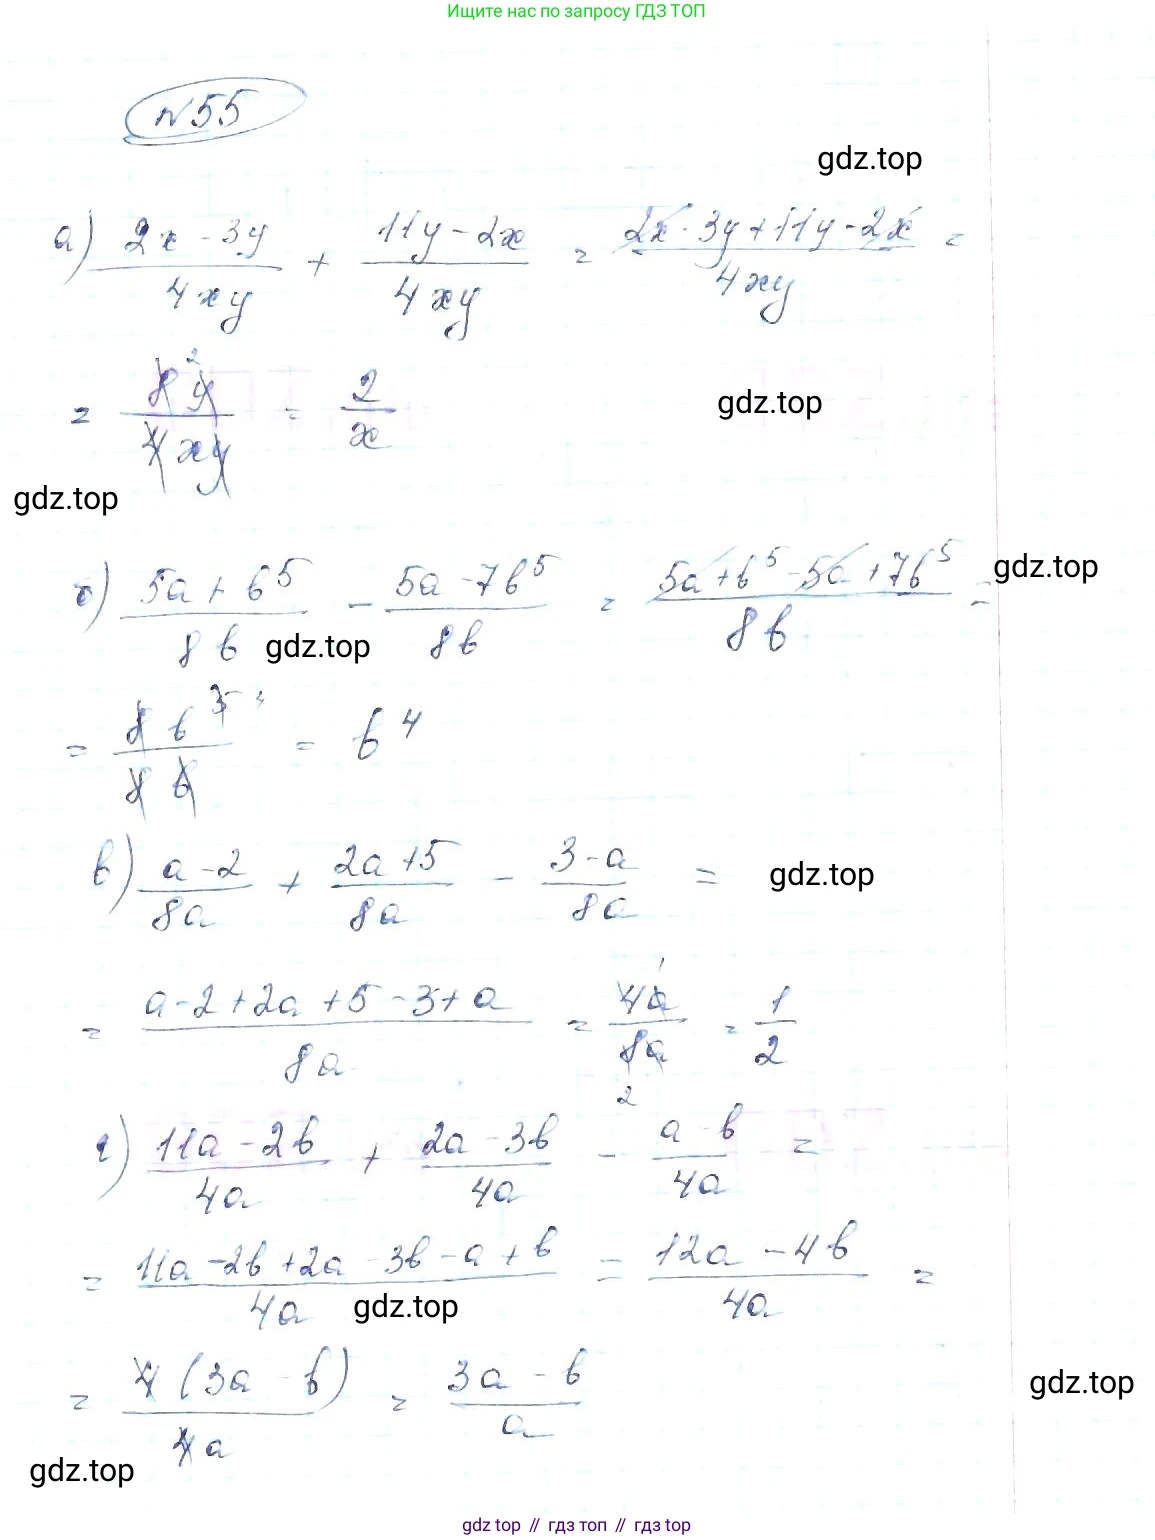 Ищите нас по запросу ГДЗ ТОП
№55
gdz.top
а) (2x - 3y)/(4xy) + (11y - 2x)/(4xy) = (2x - 3y + 11y - 2x)/(4xy) =
= (8y)/(4xy) = 2/x
gdz.top
gdz.top
б) (5a + b^5)/(8b) - (5a - 7b^5)/(8b) = (5a + b^5 - 5a + 7b^5)/(8b) =
gdz.top
gdz.top
= (8b^5)/(8b) = b^4
в) (a - 2)/(8a) + (2a + 5)/(8a) - (3 - a)/(8a) =
gdz.top
= (a - 2 + 2a + 5 - 3 + a)/(8a) = (4a)/(8a) = 1/2
г) (11a - 2b)/(4a) + (2a - 3b)/(4a) - (a - b)/(4a) =
= (11a - 2b + 2a - 3b - a + b)/(4a) = (12a - 4b)/(4a) =
gdz.top
= (4(3a - b))/(4a) = (3a - b)/a
gdz.top
gdz.top
gdz top // гдз топ // gdz top